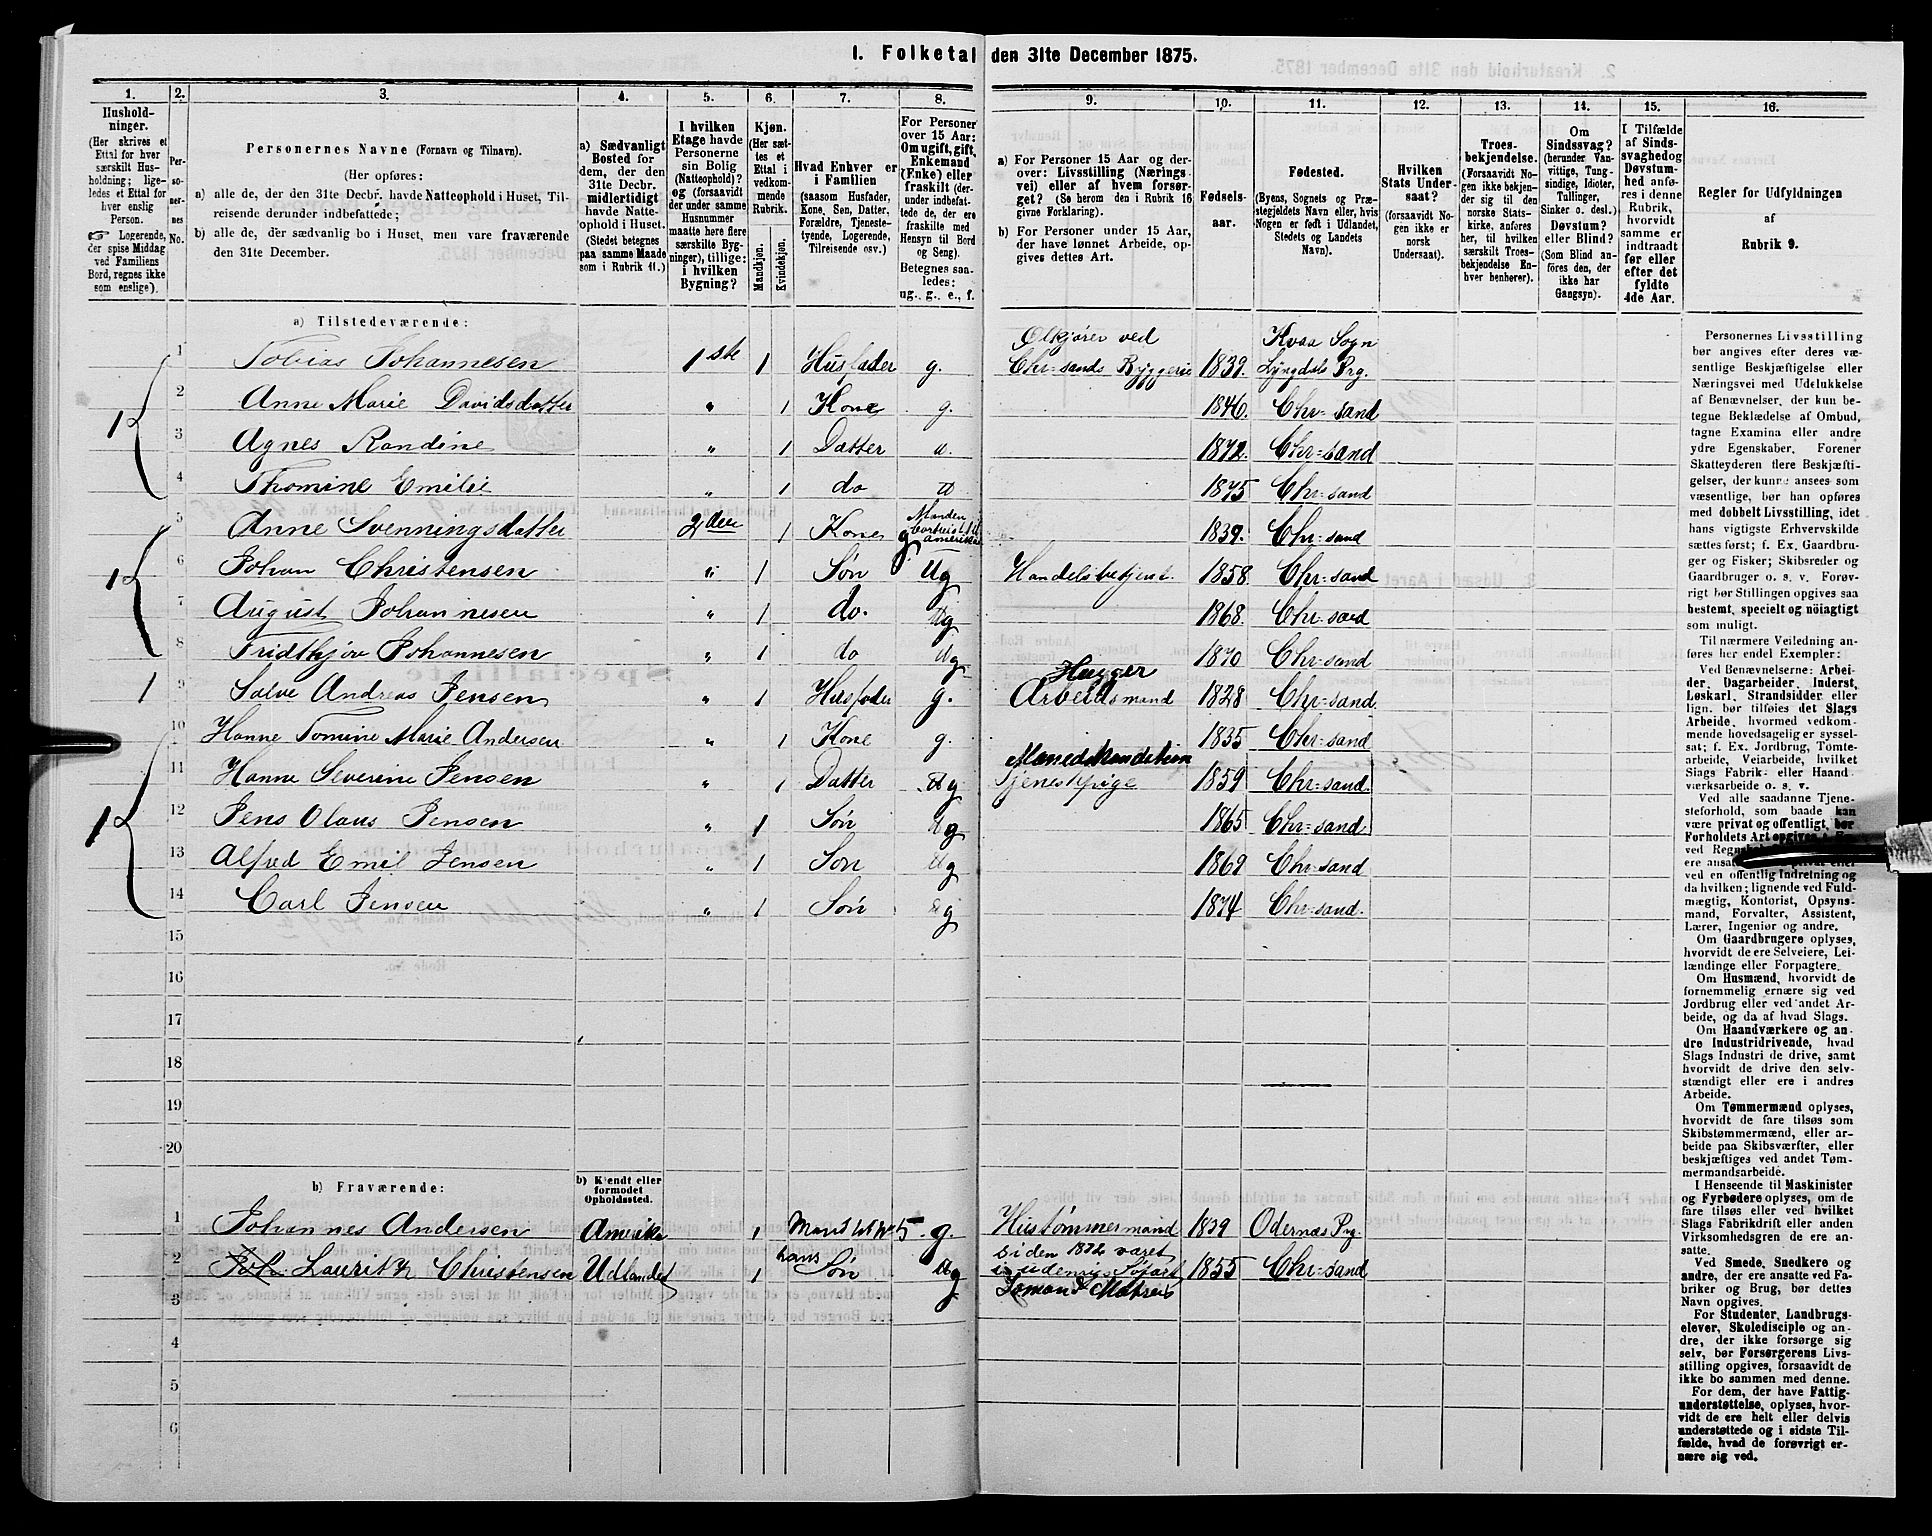 1. Folketal den 31te December 1875.
1.
Hushold-
ninger.
(Her skrives et
Ettal for hver
særskilt Hus-
holdning; lige-
ledes et Ettal for
hver enslig
Person.
Logerende,
der spise Middag
ved Familiens
Bord, regnes ikke
som enslige).
2.
Per-
so-
ner-
nes
No.
3.
Personernes Navne (Fornavn og Tilnavn).
(Her opføres:
a) alle de, der den 31te Decbr. havde Natteophold i Huset, Til-
reisende derunder indbefattede;
b) alle de, der sædvanlig bo i Huset, men vare fraværende
den 31te December.
4.
a) Sædvanligt
Bosted for
dem, der den
31te Decbr.
midlertidigt
havde Natte-
ophold i Huset.
(Stedet betegnes
paa samme Maade
som i Rubrik 11.)
5.
I hvilken
Etage havde
Personerne
sin Bolig
(Natteophold)?
og (forsaavidt
der under samme
Husnummer
maatte høre flere
særskilte Byg-
ninger), tillige:
i hvilken
Bygning?
6.
Kjøn.
(Her sæt-
tes et
Ettal i
vedkom-
mende
Rubrik.
Mandkjøn.
Kvindekjøn.
7.
Hvad Enhver er
i Familien
(saasom Husfader,
Kone, Søn, Datter,
Forældre, Tjeneste-
tyende, Logerende,
Tilreisende osv.)
8.
For Personer
over 15 Aar:
Om ugift, gift,
Enkemand
(Enke) eller
fraskilt (der-
under indbefat-
tede de, der ere
fraskilte med
Hensyn til Bord
og Seng).
Betegnes saa-
ledes:
ug., g., e., f.
9.
a) For Personer 15 Aar og der-
over: Livsstilling (Nærings-
vei) eller af hvem forsør-
get? (Se herom den i Rubrik 16
givne Forklaring).
b) For Personer under 15 Aar,
der have lønnet Arbeide, op-
gives dettes Art.
10.
Fødsels-
aar.
11.
Fødested.
(Byens, Sognets og Præ-
stegjeldets Navn eller, hvis
Nogen er født i Udlandet,
Stedets og Landets
Navn).
12.
Hvilken
Stats Under-
saat?
(forsaavidt No-
gen ikke er
norsk
Undersaat).
13.
Troes-
bekjendelse.
(Forsaavidt No-
gen ikke bekjen-
der sig til den
norske Stats-
kirke, anføres
her, til hvilken
særskilt Troes-
bekjendelse En-
hver henhører).
14.
Om
Sindssvag?
(herunder Van-
vittige, Tung-
sindige, Idioter,
Tullinger,
Sinker o. desl.)
Døvstum?
eller Blind?
(Som Blind an-
føres den, der
ikke har
Gangsyn).
15.
I Tilfælde
af Sinds-
svaghed og
Døvstum-
hed anfø-
res i denne
Rubrik,
hvorvidt
samme er
indtraadt
før eller
efter det
fyldte
4de Aar.
16.
Regler for Udfyldningen
af
Rubrik 9.
a) Tilstedeværende:
1 1 Tobias Johannesen 1ste 1 Husfader g. Ølkjører ved Chr=sands Bryggerie 1839. Kvaa Sogn Lyngdals Prg.
2 Anne Marie Davidsdatter " 1 Kone g. 1846. Chr=sand
3 Agnes Randine " 1 Datter u. 1872. Chr=sand
4 Thomine Emilie " 1 do 1875 Chr=sand
1 5 Anne Svenningsdatter 2den 1 Kone g Manden 1839. Chr=sand
6 Johan Christensen " 1 Søn Ug Handelsbetjent. 1858. Chr=sand
7 August Johannesen " 1 do. Ug 1868. Chr=sand
8 Fridthjov Johannesen " 1 do Ug 1870 Chr=sand
1 9 Salve Andreas Jensen " 1 Husfader g. Hugger Arbeidsmand 1828 Chr=sand.
1 10 Hanne Tomine Marie Andersen " 1 Kone g. 1835 Chr=sand
11 Hanne Severine Jensen " 1 Datter Ug Tjenestepige 1859 Chr=sand.
12 Jens Olaus Jensen " 1 Søn Ug 1865 Chr=sand.
13 Alfred Emil Jensen " 1 Søn Ug 1869 Chr=sand
14 Carl Jensen " 1 Søn Ug 1874 Chr=sand.
15
16
17
18
19
20
b) Fraværende:
b) Kjendt eller
formodet
Opholdssted.
1 Johannes Andersen Amerika 1 Mand til No 5. g. Hustømmermand 1839 Odernæs Prg.
2 Lauritz Christensen Udlandet 1 hans Søn Ug siden 1872 været i udenrigs Søfart 1855 Chr=sand
3
4
5
6
Personernes Livsstilling
bør angives efter deres væ-
sentlige Beskjæftigelse eller
Næringsvei med Udelukkelse
af Benævnelser, der kun be-
tegne Beklædelse af Ombud,
tagne Examina eller andre
ydre Egenskaber. Forener
Skatteyderen flere Beskjæfti-
gelser, der kunne ansees som
væsentlige, bør han opføres
med dobbelt Livsstilling, idet
hans vigtigste Erhvervskilde
sættes først; f. Ex. Gaardbru-
ger og Fisker; Skibsreder og
Gaardbruger o. s. v. Forøv-
rigt bør Stillingen opgives saa
bestemt, specielt og nøiagtigt
som muligt.
Til nærmere Veiledning an-
føres her endel Exempler:
Ved Benævnelserne: Arbei-
der, Dagarbeider, Inderst,
Løskarl, Strandsidder eller
lign. bør tilføies det Slags
Arbeide, hvormed vedkom-
mende hovedsagelig er syssel-
sat; f. Ex. Jordbrug, Tomte-
arbeide, Veiarbeide, hvilket
Slags Fabrik- eller Haand-
værksarbeide o. s. v.
Ved alle saadanne Tjene-
steforhold, som baade kan
være privat og offentligt, bør
Forholdets Art opgives,
ved
ere
ved en offentlig Indretning og
da hvilken; lignende ved Fuld-
mægtig, Kontorist, Opsyns-
mand, Forvalter, Assistent,
Lærer, Ingeniør og andre.
Om Gaardbrugere oplyses,
hvorvidt de ere Selveiere, Lei-
lændinge eller Forpagtere.
Om Husmænd, hvorvidt de
fornemmelig ernære sig ved
Jordbrug eller ved andet Ar-
beide, og da af hvad Slags.
Om Haandværkere og an-
dre Industridrivende, hvad
Slags Industri de drive, samt
hvorvidt de drive den selv-
stændigt eller ere i andres
Arbeide.
Om Tømmermænd oplyses,
hvorvidt de fare tilsøs som
Skibstømmermænd, eller ar-
beide paa Skibsværfter, eller
beskjæftiges ved andet Tøm-
mermandsarbeide.
I Henseende til Maskinister
og Fyrbødere oplyses, om de
fare tilsøs eller ved hvilket
Slags Fabrikdrift eller anden
Virksomhedsgren de ere an-
satte.
Ved Smede, Snedkere og
andre, der ere ansatte ved Fa-
briker og Brug, bør dettes
Navn opgives.
For Studenter, Landbrugs-
elever, Skoledisciple og an-
dre, der ikke forsørge sig
selv, bør Forsørgerens Livs-
stilling opgives, forsaavidt de
ikke bo sammen med denne.
For dem, der have Fattig-
understøttelse, oplyses, hvor-
vidt de ere helt eller delvis
understøttede og i sidste Til-
fælde, hvad de forøvrigt er-
nære sig ved.